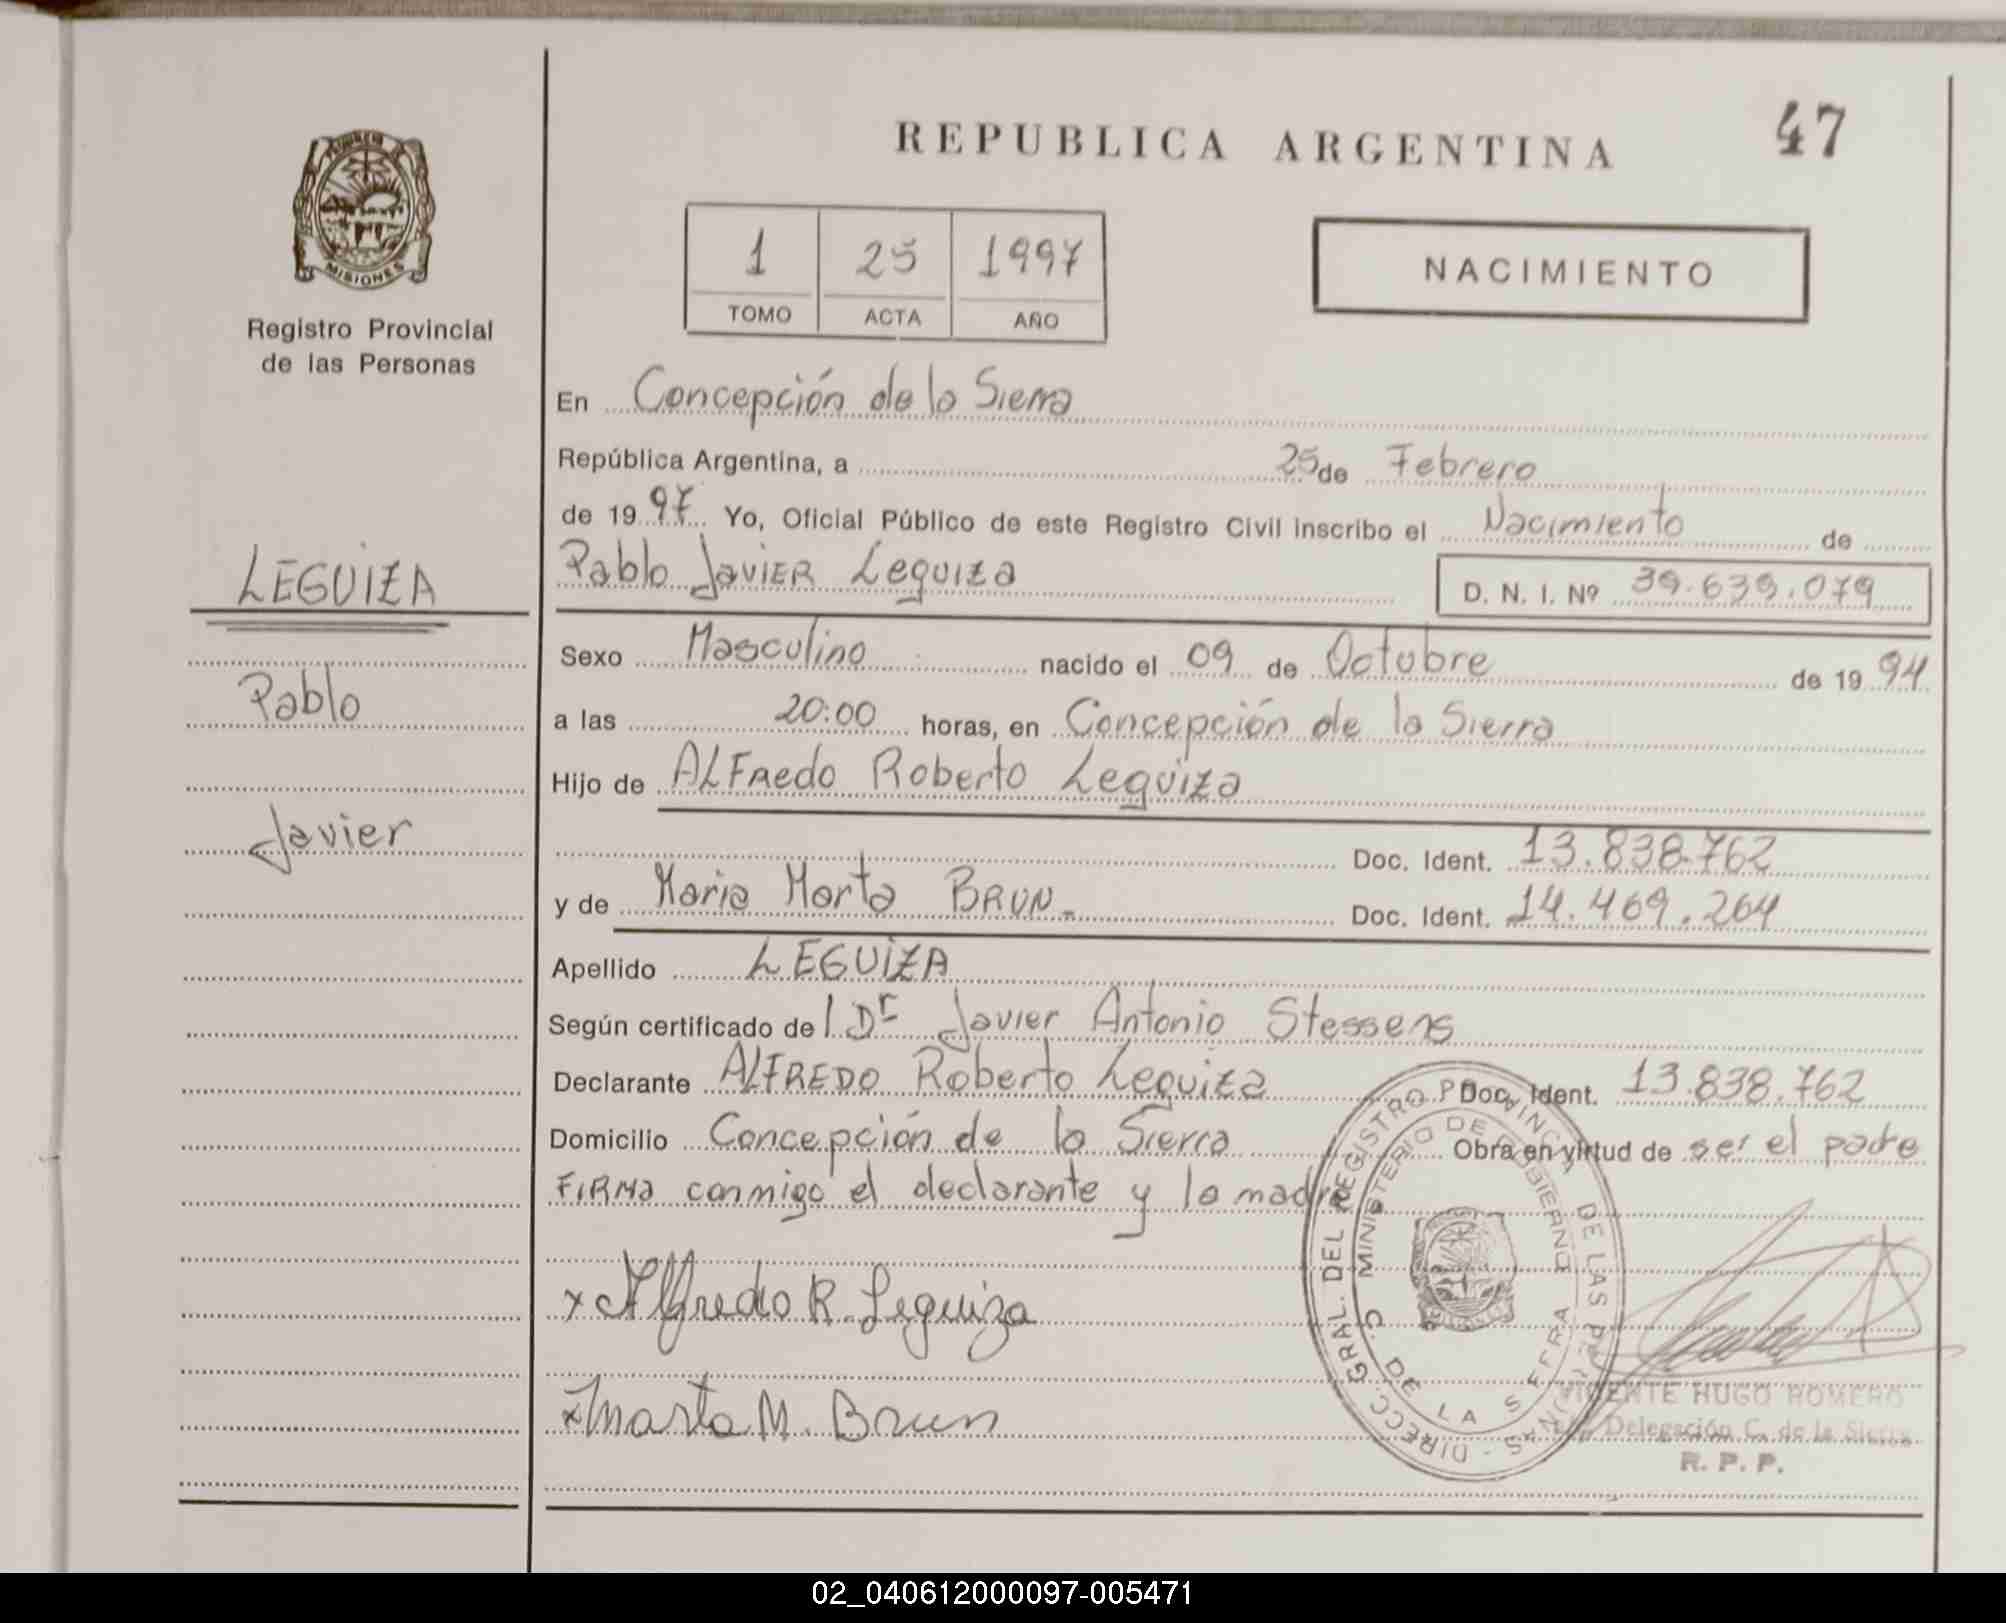 REPUBLICA ARGENTINA
47
MISIONES
Registro Provincial
de las Personas
1 25 1997
TOMO ACTA AÑO
NACIMIENTO
En Concepción de la Sierra
República Argentina, a 25 de Febrero
de 1997 Yo, Oficial Público de este Registro Civil inscribo el Nacimiento de
Pablo Javier Leguiza D. N. I. Nº 39.639.079
LEGUIZA
Pablo
Javier
Sexo Masculino nacido el 09 de Octubre de 1994
a las 20:00 horas, en Concepción de la Sierra
Hijo de ALFredo Roberto Leguiza
Doc. Ident. 13.838.762
y de Maria Marta BRUN.- Doc. Ident. 14.469.264
Apellido LEGUIZA
Según certificado del Dr Javier Antonio Stessens
Declarante ALFREDO Roberto Leguiza Doc. Ident. 13.838.762
Domicilio Concepción de la Sierra Obra en virtud de ser el padre
FIRMA conmigo el declarante y la madre
x Alfredo R. Leguiza
x Marta M. Brun
DIRECC. GRAL. DEL REGISTRO PROVINCIAL DE LAS PERSONAS -
MINISTERIO DE GOBIERNO
C. DE LA SIERRA
VICENTE HUGO ROMERO
Delegación C. de la Sierra
R. P. P.
02_040612000097-005471